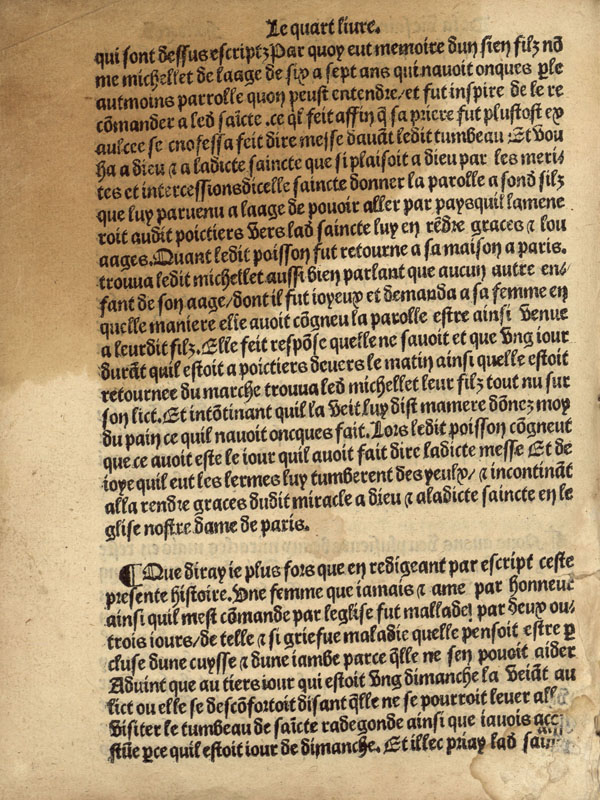 Le quart liure.
qui sont dessus escriptz Par quoy eut memoire dun sien filz nõ
me michellet de laage de six a sept ans qui nauoit onques ꝑle
autmoins parrolle quon peust entendre/et fut inspire de le re
cõmander a led saĩcte .ce qĩ feit affin q̃ sa priere fut plustost ex
aulcee se cnofessa feit dire messe dauãt ledit tumbeau Et vou
ha a dieu ⁊ a ladicte saincte que si plaisoit a dieu par les meri⸗
tes et intercessions dicelle saincte donner la parolle a sond filz
que luy paruenu a laage de pouoir aller par pays quil lamene
roit audit poictiers vers lad saincte luy en rẽdre graces ⁊ lou
aages. Quant ledit poisson fut retourne a sa maison a paris.
trouua ledit michellet aussi bien parlant que aucun autre en⸗
fant de son aage/dont il fut ioyeux et demanda a sa femme en
quelle maniere elie auoit cõgneu la parolle estre ainsi venue
a leurdit filz. Elle feit respõse quelle ne sauoit et que vng iour
durãt quil estoit a poictiers deuers le matin ainsi quelle estoit
retournee du marche trouua led michellet leur filz tout nu sur
son lict. Et intõtinant quil la veit luy dist mamere dõnez moy
du pain ce quil nauoit oncques fait. Lors ledit poisson cõgneut
que ce auoit este le iour quil auoit fait dire ladicte messe Et de
ioye quil eut les lermes luy tumberent des yeulx/ ⁊ incontinãt
alla rendre graces dudit miracle a dieu ⁊ aladicte saincte en le
glise nostre dame de paris.
¶ Que diray ie plus fors que en redigeant par escript ceste
presente histoire. Vne femme que iamais ⁊ ame par honneur
ainsi quil mest cõmande par leglise fut mallade par deux ou⸗
trois iours/de telle ⁊ si griefue maladie quelle pensoit estre ꝑ
cluse dune cuysse ⁊ dune iambe parce q̃lle ne sen pouoit aider
Aduint que au tiers iour qui estoit vng dimanche la veiãt au
lict ou elle se descõfortoit disant q̃lle ne se pourroit leuer
visiter le tumbeau de saĩcte radegonde ainsi que iauois acc
stũe ꝑce quil estoit iour de dimanche. Et illec priay lad